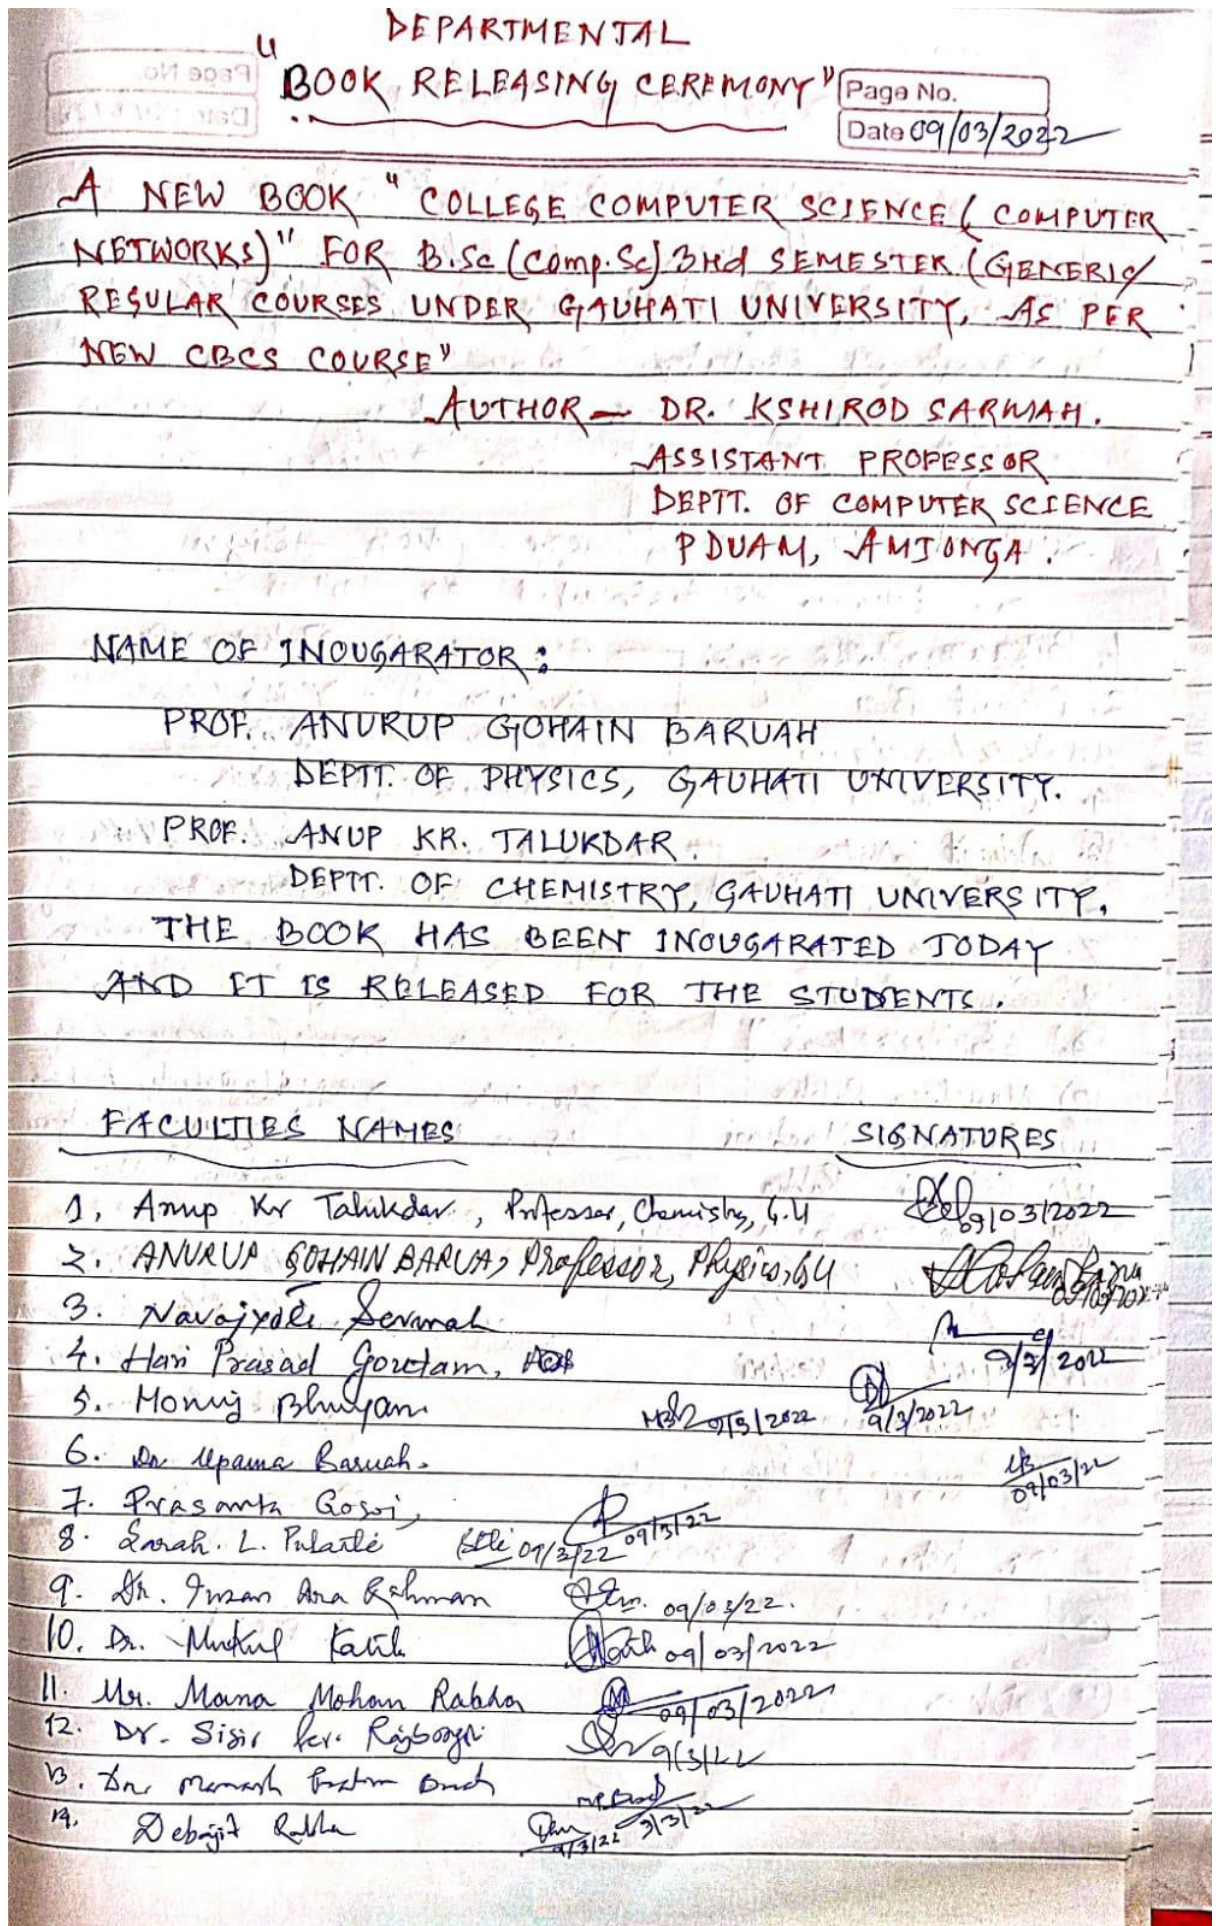 DEPARTMENTAL
"BOOK RELEASING CEREMONY"
Page No.
Date 09/03/2022
A NEW BOOK "COLLEGE COMPUTER SCIENCE (COMPUTER
NETWORKS)" FOR B.Sc (Comp.Sc) 3rd SEMESTER (GENERIC/
REGULAR COURSES UNDER GAUHATI UNIVERSITY, AS PER
NEW CBCS COURSE"
AUTHOR – DR. KSHIROD SARMAH.
ASSISTANT PROFESSOR
DEPTT. OF COMPUTER SCIENCE
PDUAM, AMJONGA.
NAME OF INOUGARATOR:
PROF. ANURUP GOHAIN BARUAH
DEPTT. OF PHYSICS, GAUHATI UNIVERSITY.
PROF. ANUP KR. TALUKDAR.
DEPTT. OF CHEMISTRY, GAUHATI UNIVERSITY.
THE BOOK HAS BEEN INOUGARATED TODAY
AND IT IS RELEASED FOR THE STUDENTS.
FACULTIES NAMES SIGNATURES
1. Anup Kr Talukdar, Professor, Chemistry, G.U 09/03/2022
2. ANURUP GOHAIN BARUA, Professor, Physics, GU
3. Navajyoti Sarmah
4. Hari Prasad Goutam, 9/3/2022
5. Monuj Bhuyan 9/3/2022
6. Dr Upama Baruah. 09/03/22
7. Prasanta Gogoi, 09/3/22
8. Sarah. L. 09/3/22
9. Dr. Imran Ara Rahman 09/03/22.
10. Dr. Mukul 09/03/2022
11. Mr. Mana Mohan Rabha 09/03/2022
12. Dr. Sisir 9/3/22
13. 9/3/22
14. Debajit Rabha 9/3/22